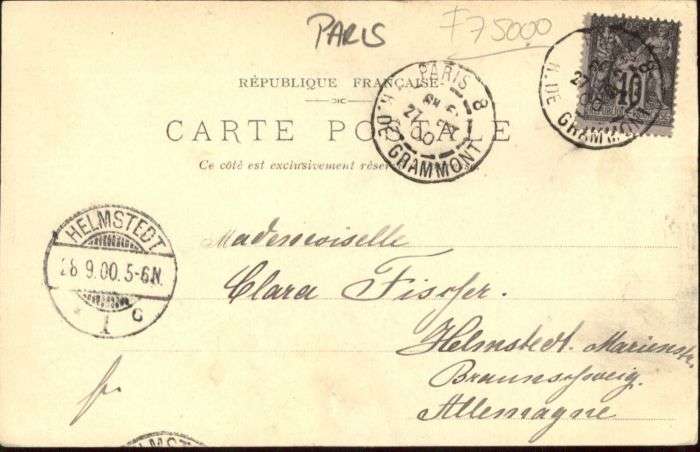 PARIS
F75000
RÉPUBLIQUE FRANÇAISE
CARTE POSTALE
Ce côté est exclusivement
PARIS 8
27
00
R. DE GRAMMONT
8
27
00
R. DE GRAMM
10
HELMSTEDT
28.9.00.5-6N.
1 c
Mademoiselle
Clara Fischer.
Helmstedt. Marienstr
Braunschweig.
Allemagne
fr.